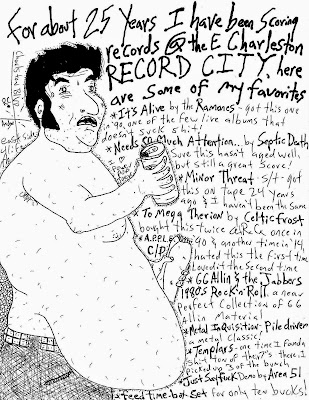 For about 25 years I have been scoring
records @ the E Charleston
RECORD CITY, here
are some of my favorites
*It's Alive by the Ramones - got this one
in '90, one of the few live albums that
doesn't suck shit!
*Needs So Much Attention.. by Septic Death
Sure this hasn't aged well,
but still a great score!
*Minor Threat s/t - got
this on tape 24 years
ago & I haven't been the same
*To Mega Therion by Celtic Frost
bought this twice @ RC once in
'90 & another time in '14,
hated this the first time
Loved it the second time
*A.P.P.L.E.
C/D
*GG Allin & the Jabbers
1980s Rock-n-Roll, a near
perfect Collection of GG
Allin Material
*Metal Inquisition - Piledriver
a metal classic!
*Templars - one time I found a
shit ton of the 7"s there. I
picked up 3 of the bunch
*Just Say Fuck Demo by Area 51
*Feed Time box set for only ten bucks!
Charleston Blvd
RC
East Side